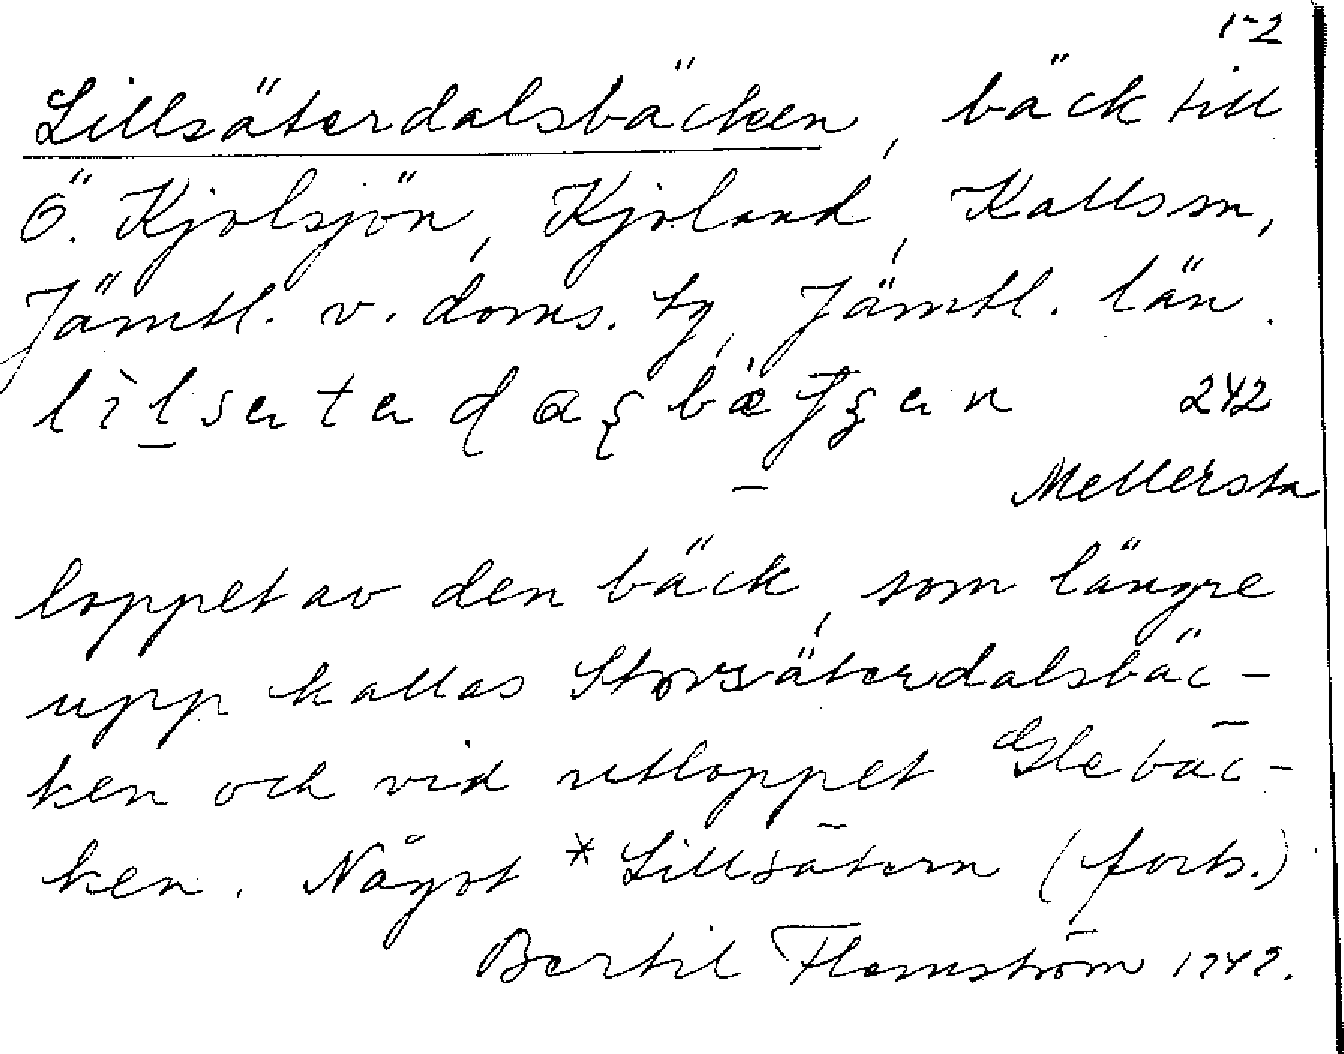 1-2
Lillsäterdalsbäcken, bäck till
Ö. Kjolsjön, Kjoland, Kallsm,
Jämtl. v. doms. tg, Jämtl. län.
242
Mellersta
loppet av den bäck, som längre
upp kallas Storsäterdalsbäc-
ken och vid utloppet Glebäc-
ken. Något *Lillsätern (forts.)
Bertil Flemström